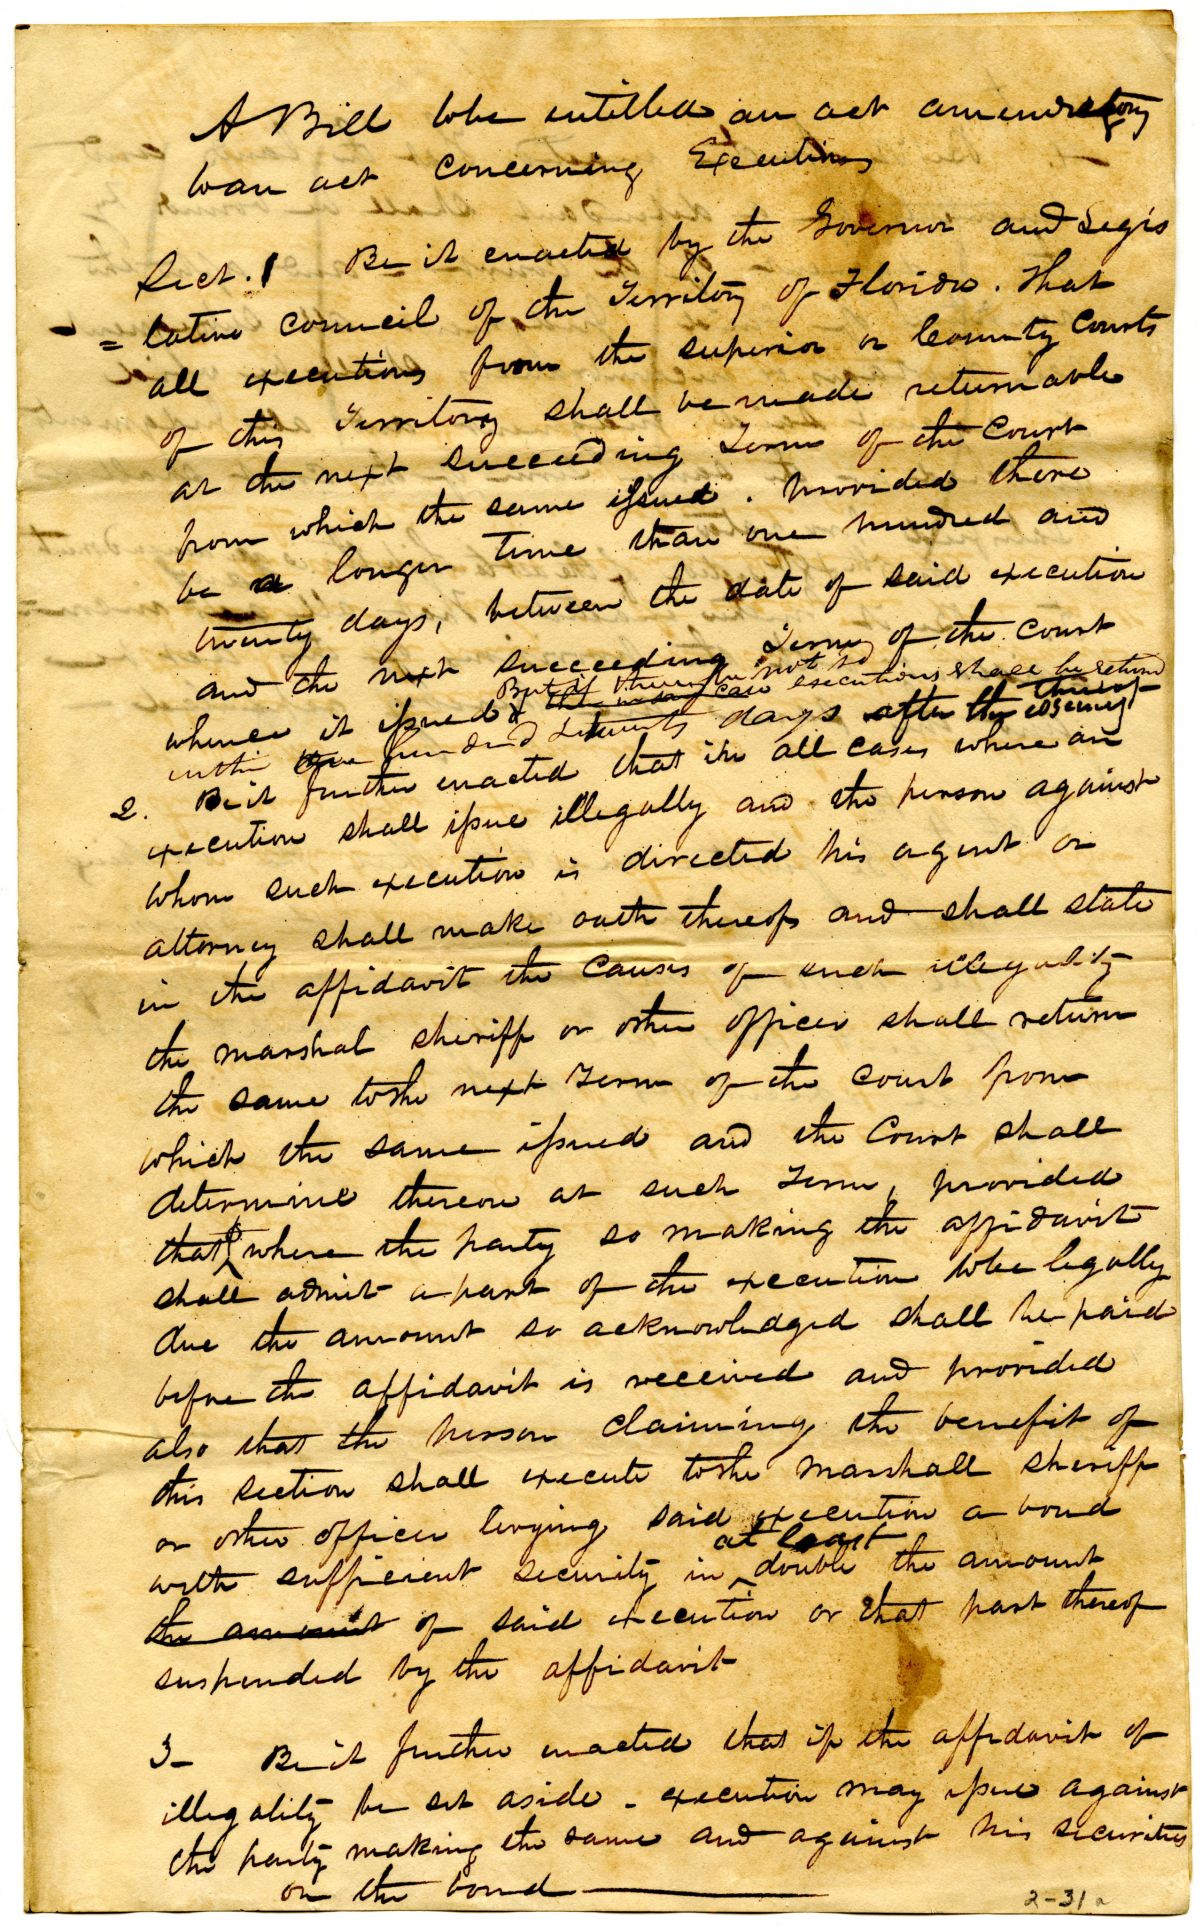 A Bill to be entitled an act amendatory
to an act concerning Executions
Sect. 1 Be it enacted by the Governor and Legis
= lative council of the Territory of Florida. That
all executions from the superior or County Courts
of this Territory shall be made returnable
at the next succeeding Term of the Court
from which the same issued. provided there
be a longer time than one hundred and
twenty days, between the date of said execution
and the next succeeding Term of the Court
But if there be not so
whence it issued executions shall be return
within one hundred & twenty days after the issuing thereof
2. Be it further enacted that in all cases where an
execution shall issue illegally and the person against
whom such execution is directed his agent or
attorney shall make oath thereof and shall state
in the affidavit the causes of such illegality
the marshal sheriff or other officer shall return
the same to the next Term of the Court from
which the same issued and the Court shall
determine thereon at such Term, provided
that where the party so making the affidavit
shall admit a part of the execution to be legally
due the amount so acknowledged shall be paid
before the affidavit is received and provided
also that the person claiming the benefit of
this section shall execute to the Marshall sheriff
or other officer levying said execution a bond
at least
with sufficient security in double the amount
the amount of said execution or that part thereof
suspended by the affidavit
3 - Be it further enacted that if the affidavit of
illegality be set aside - execution may issue against
the party making the same and against his securities
on the bond
2-31a